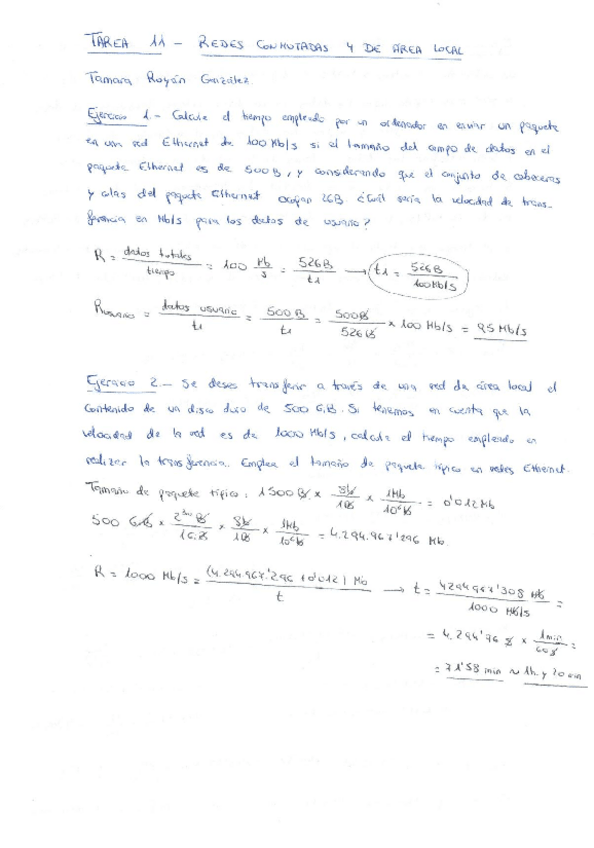 TAREA 11 - REDES CONMUTADAS Y DE ÁREA LOCAL
Tamara Royán González.
Ejercicio 1.- Calcule el tiempo empleado por un ordenador en enviar un paquete
en una red Ethernet de 100 Mb/s si el tamaño del campo de datos en el
paquete Ethernet es de 500 B, y considerando que el conjunto de cabeceras
y colas del paquete Ethernet ocupan 26B ¿Cuál sería la velocidad de trans-
ferencia en Mb/s para los datos de usuario?
R = datos totales / tiempo = 100 Mb/s = 526B / t1 → t1 = 526B / 100Mb/s
Rusuario = datos usuario / t1 = 500B / t1 = 500B / 526B × 100 Mb/s = 95 Mb/s
Ejercicio 2.- Se desea transferir a través de una red de área local el
contenido de un disco duro de 500 GiB. Si tenemos en cuenta que la
velocidad de la red es de 1000 Mb/s, calcule el tiempo empleado en
realizar la transferencia. Emplea el tamaño de paquete típico en redes Ethernet.
Tamaño de paquete típico: 1500 B × 8b / 1B × 1Mb / 10⁶b = 0'012 Mb
500 GiB × 2³⁰ B / 1GiB × 8b / 1B × 1Mb / 10⁶b = 4.294.967'296 Mb.
R = 1000 Mb/s = (4.294.967'296 + 0'012) Mb / t → t = 4294967'308 Mb / 1000 Mb/s =
= 4.294'96 s × 1min / 60s =
= 71'58 min ~ 1h. y 20 min